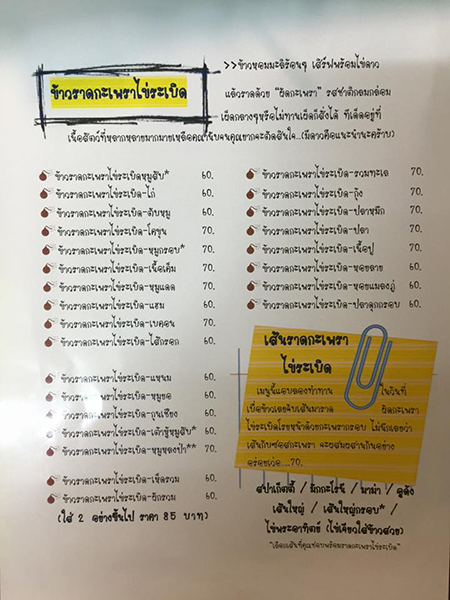 ข้าวราดกะเพราไข่ระเบิด
>>ข้าวหอมมะลิร้อนๆ เสิร์ฟพร้อมไข่ดาว
แล้วราดด้วย "ผัดกะเพรา" รสชาติกลมกล่อม
เผ็ดกลางๆหรือไม่ทานเผ็ดก็สั่งได้ ทีเด็ดอยู่ที่
เนื้อสัตว์ที่หลากหลายมากมายเหลือคณานับจนคุณยากจะตัดสินใจ...(มีดาวคือแนะนำนะครับ)
ข้าวราดกะเพราไข่ระเบิดหมูสับ* 60.
ข้าวราดกะเพราไข่ระเบิด-ไก่ 60.
ข้าวราดกะเพราไข่ระเบิด-ตับหมู 60.
ข้าวราดกะเพราไข่ระเบิด-โคขุน 70.
ข้าวราดกะเพราไข่ระเบิด-หมูกรอบ* 70.
ข้าวราดกะเพราไข่ระเบิด-เนื้อเค็ม 70.
ข้าวราดกะเพราไข่ระเบิด-หมูแดด 70.
ข้าวราดกะเพราไข่ระเบิด-แฮม 60.
ข้าวราดกะเพราไข่ระเบิด-เบคอน 70.
ข้าวราดกะเพราไข่ระเบิด-ไส้กรอก 60.
ข้าวราดกะเพราไข่ระเบิด-แหนม 60.
ข้าวราดกะเพราไข่ระเบิด-หมูยอ 60.
ข้าวราดกะเพราไข่ระเบิด-กุนเชียง 60.
ข้าวราดกะเพราไข่ระเบิด-เต้าหู้หมูสับ* 60.
ข้าวราดกะเพราไข่ระเบิด-หมูหลงป่า** 70.
ข้าวราดกะเพราไข่ระเบิด-เห็ดรวม 60.
ข้าวราดกะเพราไข่ระเบิด-ผักรวม 60.
(ใส่ 2 อย่างขึ้นไป ราคา 85 บาท)
ข้าวราดกะเพราไข่ระเบิด-รวมทะเล 70.
ข้าวราดกะเพราไข่ระเบิด-กุ้ง 70.
ข้าวราดกะเพราไข่ระเบิด-ปลาหมึก 70.
ข้าวราดกะเพราไข่ระเบิด-ปลา 70.
ข้าวราดกะเพราไข่ระเบิด-เนื้อปู 70.
ข้าวราดกะเพราไข่ระเบิด-หอยลาย 60.
ข้าวราดกะเพราไข่ระเบิด-หอยแมลงภู่ 60.
ข้าวราดกะเพราไข่ระเบิด-ปลาดุกกรอบ 60.
เส้นราดกะเพรา
ไข่ระเบิด
เมนูนี้แอบลองทำทาน ในวันที่
เบื่อข้าวเลยจับเส้นมาราด ผัดกะเพรา
ไข่ระเบิดโรยหน้าด้วยกะเพรากรอบ ไม่นึกเลยว่า
เส้นกับซอสกะเพรา จะผสมผสานกันอย่าง
อร่อยเว่อ....70.
สปาเก็ตตี้ / มักกะโรนี / มาม่า / อูด้ง
เส้นใหญ่ / เส้นใหญ่กรอบ* /
ไข่พระอาทิตย์ (ไข่เจียวใส่ข้าวสวย)
"เลือกเส้นที่คุณชอบพร้อมราดกะเพราไข่ระเบิด"